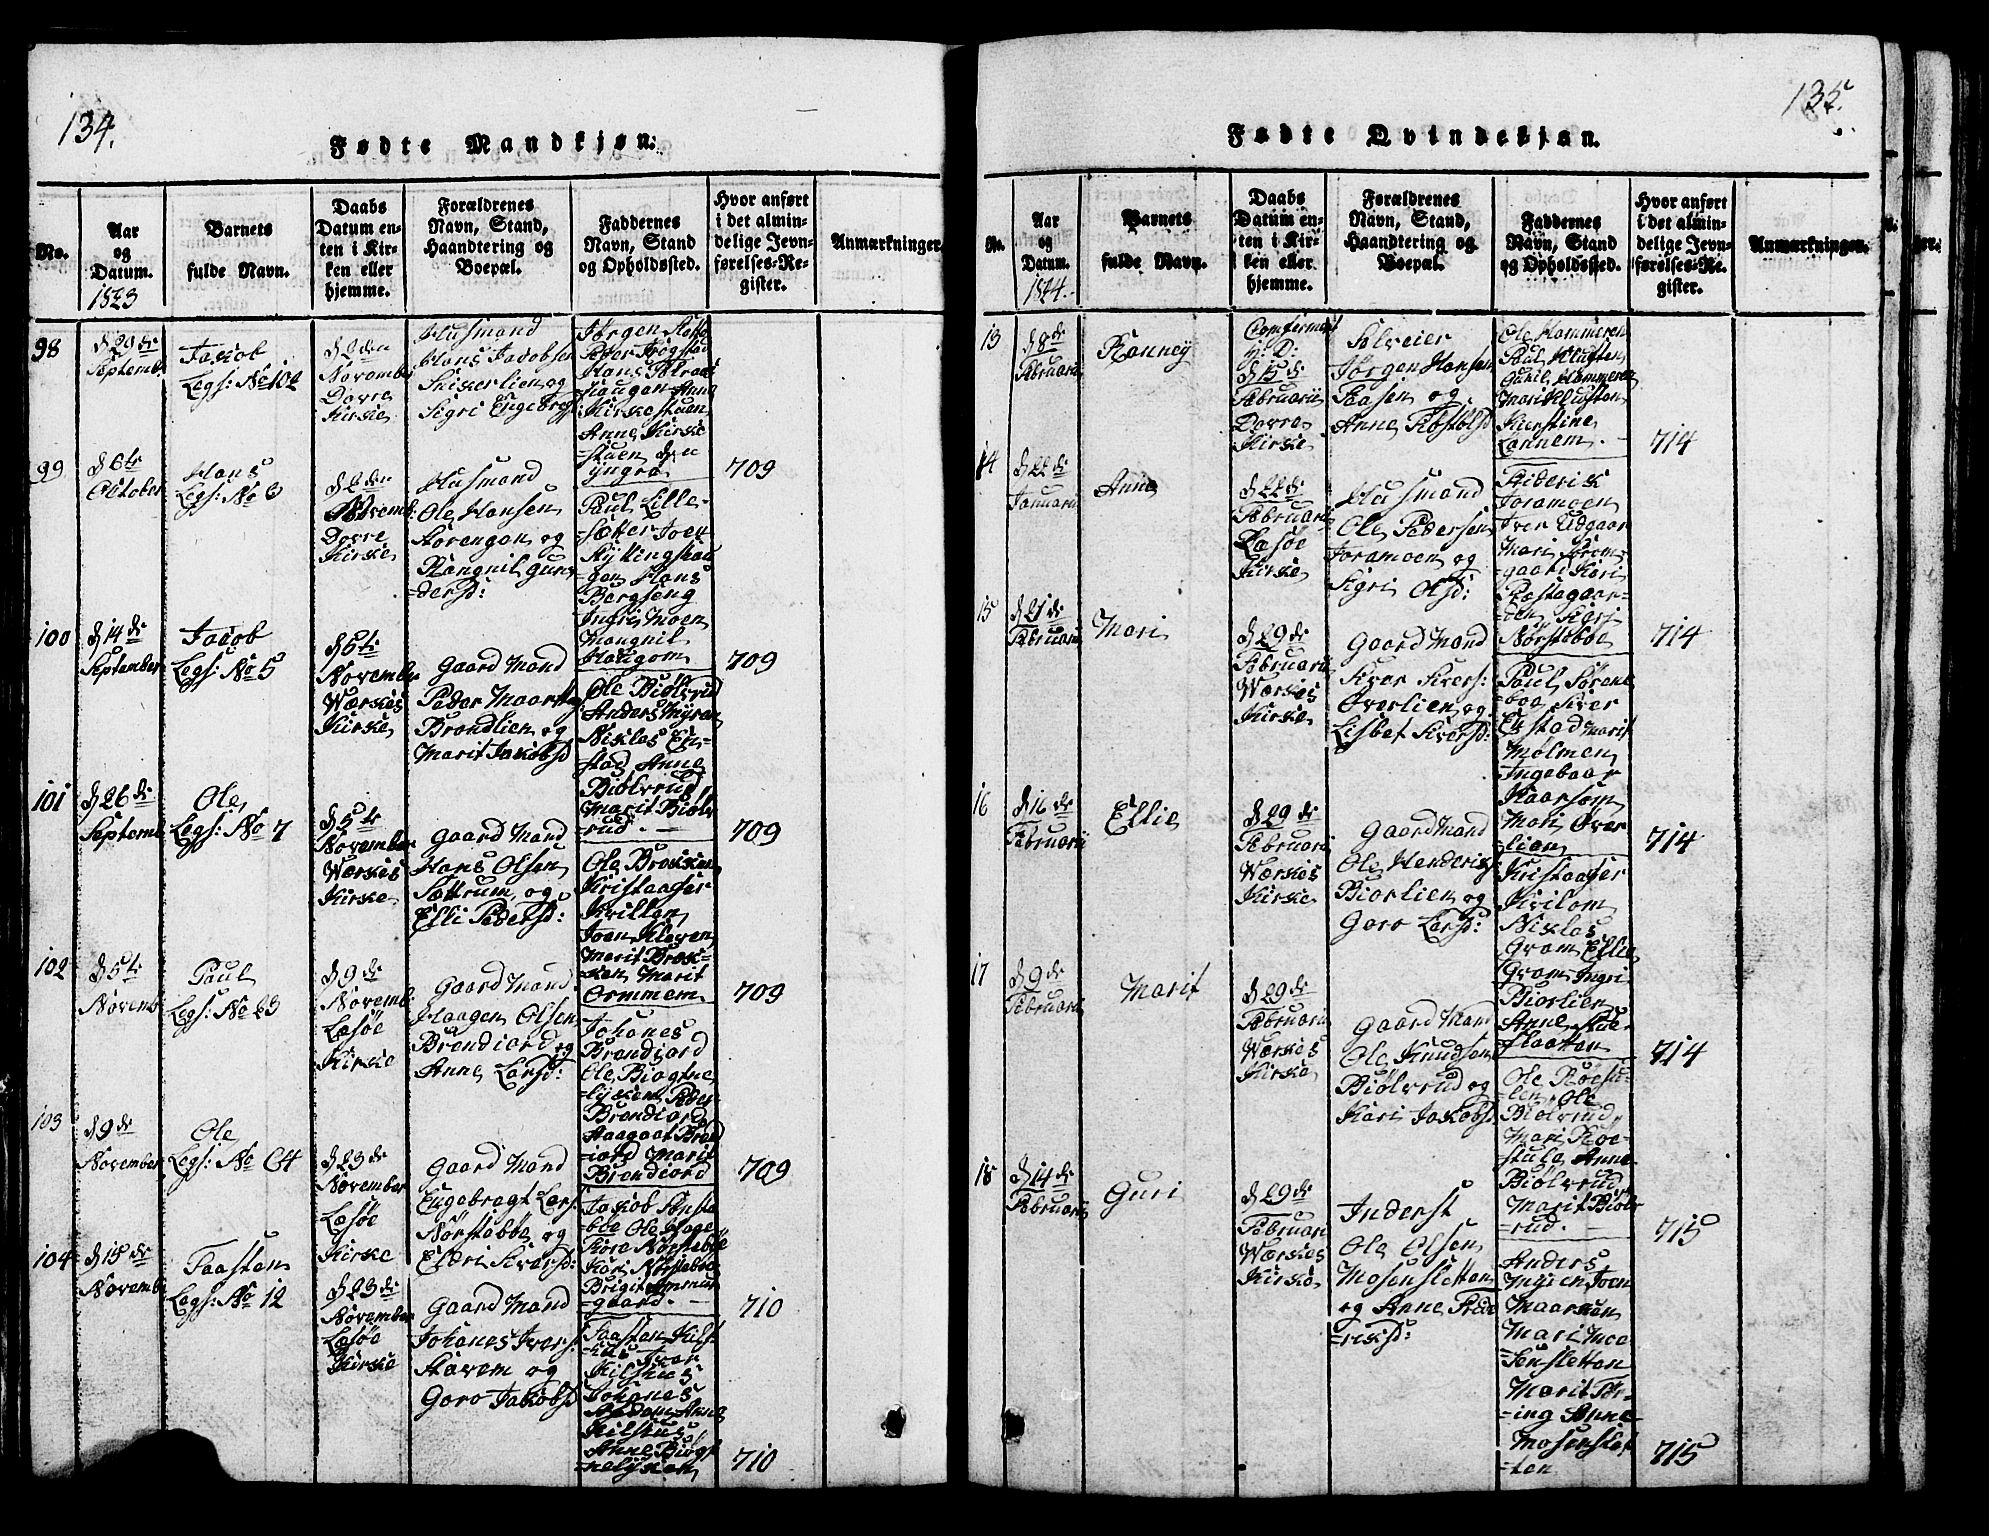 134.
Fødte Mandkjøn.
No.
Aar
og
Datum.
1823
Barnets
fulde Navn.
Daabs
Datum en-
ten i Kir-
ken eller
hjemme.
Forældrenes
Navn, Stand,
Haandtering og
Boepæl.
Faddernes
Navn, Stand
og Opholdssted.
Hvor anført
i det almin-
delige Jevn-
førelses-Re-
gister.
Anmærkninger.
98
d 20de
Septemb:
Jakob
Legs: No 104
d 2den
Novemb:
Dovre
Kirke
Husmand
Hans Jacobsen
og
Sigri Engebregts
Jørgen
Haugen Anne
Kirkestuen
Anne Kirke
stuen den
yngre
709
99
d 6te
October
Hans
Legs: No 6
d 2den
Novemb:
Dovre
Kirke
Husmand
Ole Hansen
og
Rangnil Gun
dersd:
Paul Lille-
=sætter Joen
Kyllingshau
gen Hans
Bergseng
Ingri Moen
Mangnil
Haugom
709
100
d 14de
September
Jacob
Legs: No 5
d 6te
November
Værkes
Kirke
Gaard Mand
Peder
Brendlien og
Marit Jakobsd
Ole Biølvrud
Anders Myren
Niklas En-
stad Anne
Biølvrud
Marit Biølv
rud. -
709
101
d 26de
Septemb
Ole
Legs: No 7
d 5te
November
Værkes
Kirke
Gaard Mand
Hans Olsen
Sættrum og
Elli Pedersd:
Ole Brekken
Kristaaffer
Kvillen
Joen Kleven
Marit Bræk-
ken Marit
709
102
d 5te
Novemb:
Paul
Legs: No 23
d 9de
Novemb:
Lesøe
Kirke
Gaard Mand
Haagen Olsen
Brendjord og
Anne Larsd:
Johanes
Brendjord
Ole
Peder
Brendjord
jord Marit
Brendjord
709
103
d 9de
November
Ole
Legs: No 64
d 23de
November
Lesøe
Kirke
Gaard Mand
Engebregt Lars:
Nørstebøe og
Eldri Siversd:
Jakob
boe Ole
Tore Nørstebøe
Kari Nørstebøe
Brigit
gaard. -
710
104
d 15de
Novemb
Faasten
Legs: No 12
d 23de
November
Lesøe
Kirke
Gaard Mand
Johanes Ivers:
Stavem og
Goro Jakobsd
Faasten Kilst
Iver
Kilshus
Johanes
Anne
Kilshus
Anne Biøgt
710
135.
Fødte Qvindekjøn.
No.
Aar
og
Datum.
1824.
Barnets
fulde Navn.
Daabs
Datum en-
ten i Kir-
ken eller
hjemme.
Forældrenes
Navn, Stand,
Haandtering og
Boepæl.
Faddernes
Navn, Stand
og Opholdssted.
Hvor anført
i det almin-
delige Jevn-
førelses-Re-
gister.
Anmærkninger.
13
d 8de
Februarii
Ranney
H: D:
d 15de
Februarii
Dovre
Kirke
Selveier
Jørgen Hansen
og
Anne
Ole Hammeren
Paul Kluften
Guril Hammeren
Mari Kluften
Kierstine
Lannem. -
714
14
d 22de
Januarii
Anne
d 22de
Februarii
Læsøe
Kirke
Husmand
Ole Pedersen
Joramoen og
Sigri Olsd:
Friderik
Joramoen
Iver Udgaar
Mari
gaard Kari
den Sigri
Nørstebøe
714
15
d 21de
Februarii
Mari
d 29de
Februarii
Værkes
Kirke
Gaard Mand
Siver Sivers:
Øverlien og
Lisbet Siversd:
Paul Sørem
boe Siver
Enstad Marit
Mølmen
Ingebaar
Kaarsom
Mari Øver
lien
714
16
d 16de
Februarii
Ellie
d 29de
Februarii
Værkes
Kirke
Gaard Mand
Ole Henderiks
Biorlien og
Goro Larsd:
Kristaafer
Kvilom
Niklas
Gram Ellie
Gram Ingri
Biorlien
Anne Stue
flaatten
714
17
d 9de
Februarii
Marit
d 29de
Februarii
Værkes
Kirke
Gaard Mand
Ole Knudsen
Biølvrud og
Kari Jakobs:
Ole Røesu-
len, Ole
Biølvrud
Mari Røe-
stule, Anne
Biølvrud
Marit Biølv
rud. -
715
18
d 14de
Februarii
Guri
d 29de
Februarii
Værkes
Kirke
Inderst
Ole Olsen
Mosensletten
og Anne Frede
=riksd:
Anders
Myren Joen
Maarstuen
Mari Moe
=sensletten
Marit Tør-
=ing Anne
Mosenslet
=ten
715